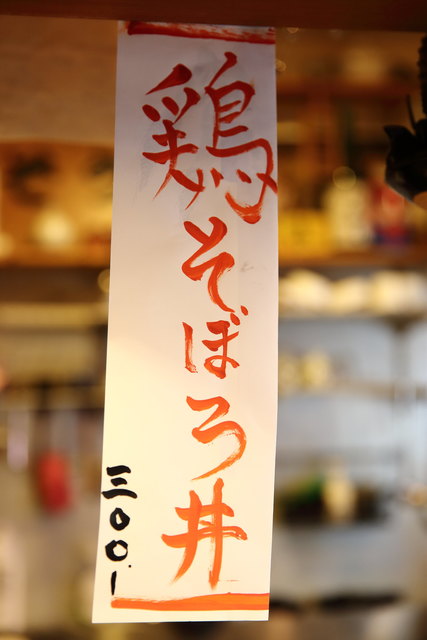 鶏そぼろ丼
三〇〇.-